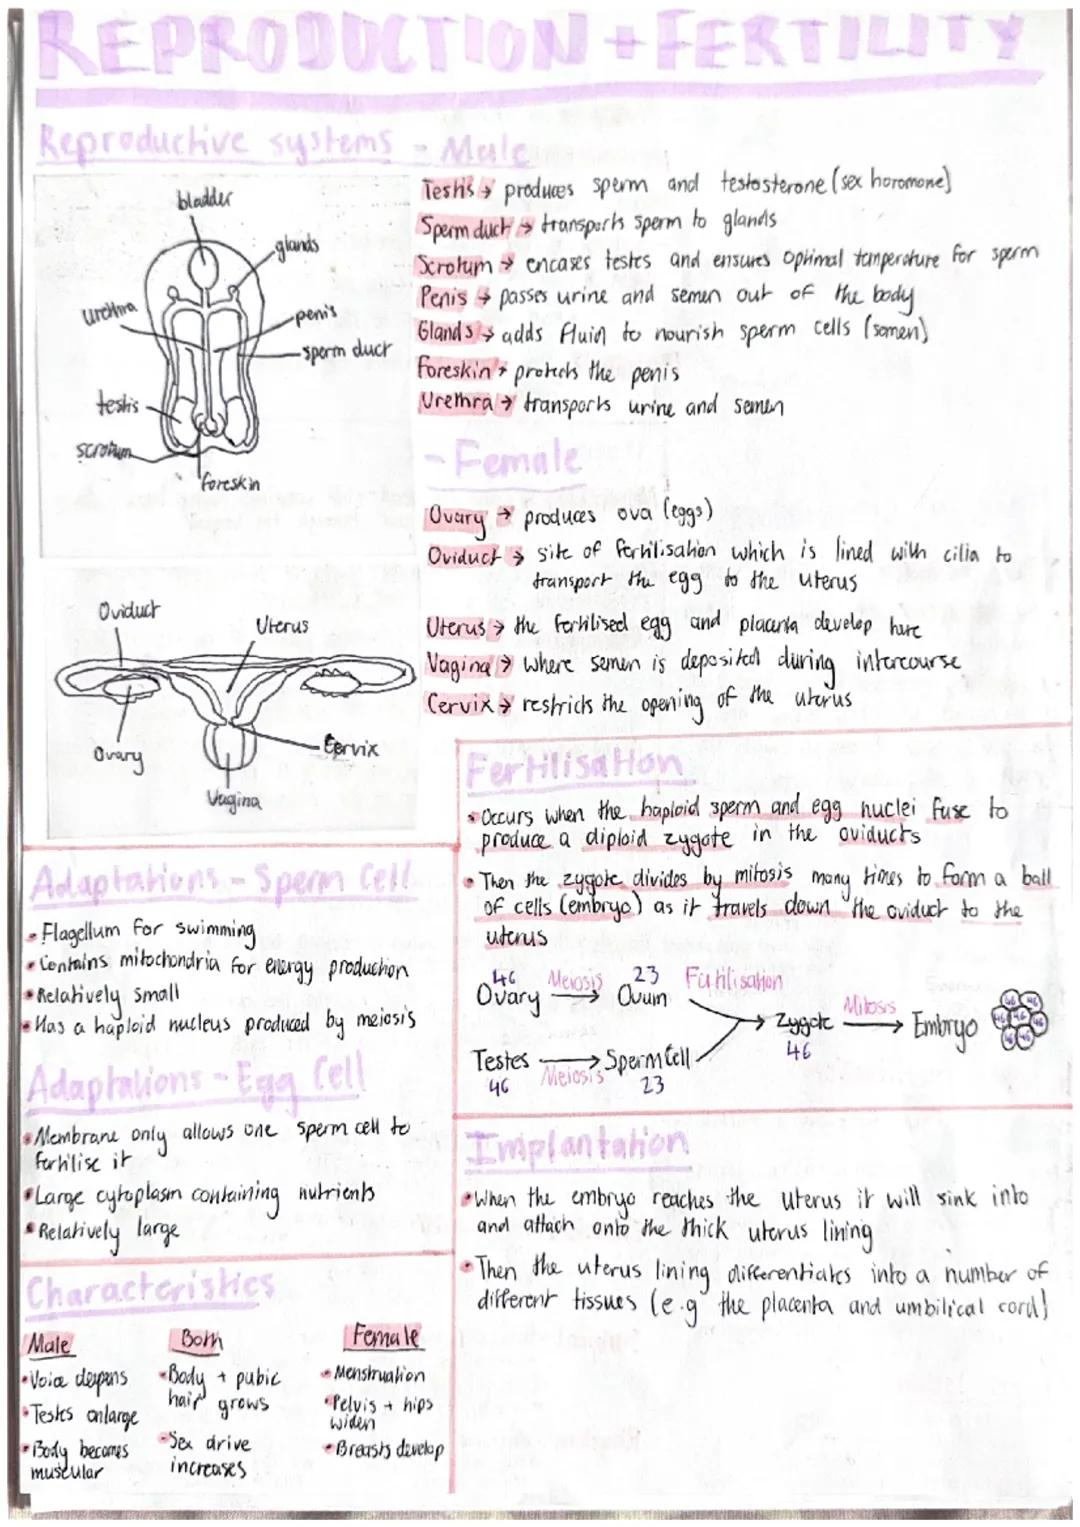 REPRODUCTION + FERTILITY
Reproductive systems - Male
bladder
glands
urethra
penis
sperm duct
testis
scrotum
foreskin
Testis → produces sperm and testosterone (sex horomone)
Sperm duct → transports sperm to glands
Scrotum → encases testes and ensures optimal temperature for sperm
Penis → passes urine and semen out of the body
Glands → adds fluid to nourish sperm cells (semen)
Foreskin → protects the penis
Urethra → transports urine and semen
- Female
Ovary → produces ova (eggs)
Oviduct → site of fertilisation which is lined with cilia to
transport the egg to the uterus
Uterus → the fertilised egg and placenta develop here
Vagina → where semen is deposited during intercourse
Cervix → restricts the opening of the uterus
Oviduct
Uterus
Ovary
Cervix
Vagina
Adaptations - Sperm Cell
• Flagellum for swimming
• Contains mitochondria for energy production
• Relatively small
• Has a haploid nucleus produced by meiosis
Adaptations - Egg Cell
• Membrane only allows one sperm cell to
fertilise it
• Large cytoplasm containing nutrients
• Relatively large
Characteristics
Male
• Voice deepens
• Testes enlarge
• Body becomes
muscular
Both
• Body + pubic
hair grows
• Sex drive
increases
Female
• Menstruation
• Pelvis + hips
widen
• Breasts develop
Fertilisation
• Occurs when the haploid sperm and egg nuclei fuse to
produce a diploid zygote in the oviducts
• Then the zygote divides by mitosis many times to form a ball
of cells (embryo) as it travels down the oviduct to the
uterus
46 Meiosis 23 Fertilisation
Ovary → Ovum
→ Zygote Mitosis → Embryo
46
46 46 46 46 46 46 46
Testes → Sperm Cell
46 Meiosis 23
Implantation
• When the embryo reaches the uterus it will sink into
and attach onto the thick uterus lining
• Then the uterus lining differentiates into a number of
different tissues (e.g the placenta and umbilical cord)